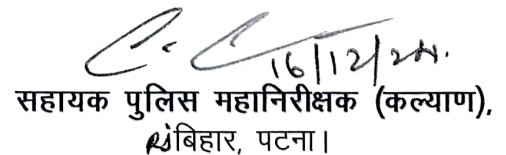 16/12/24.
सहायक पुलिस महानिरीक्षक (कल्याण),
बिहार, पटना।